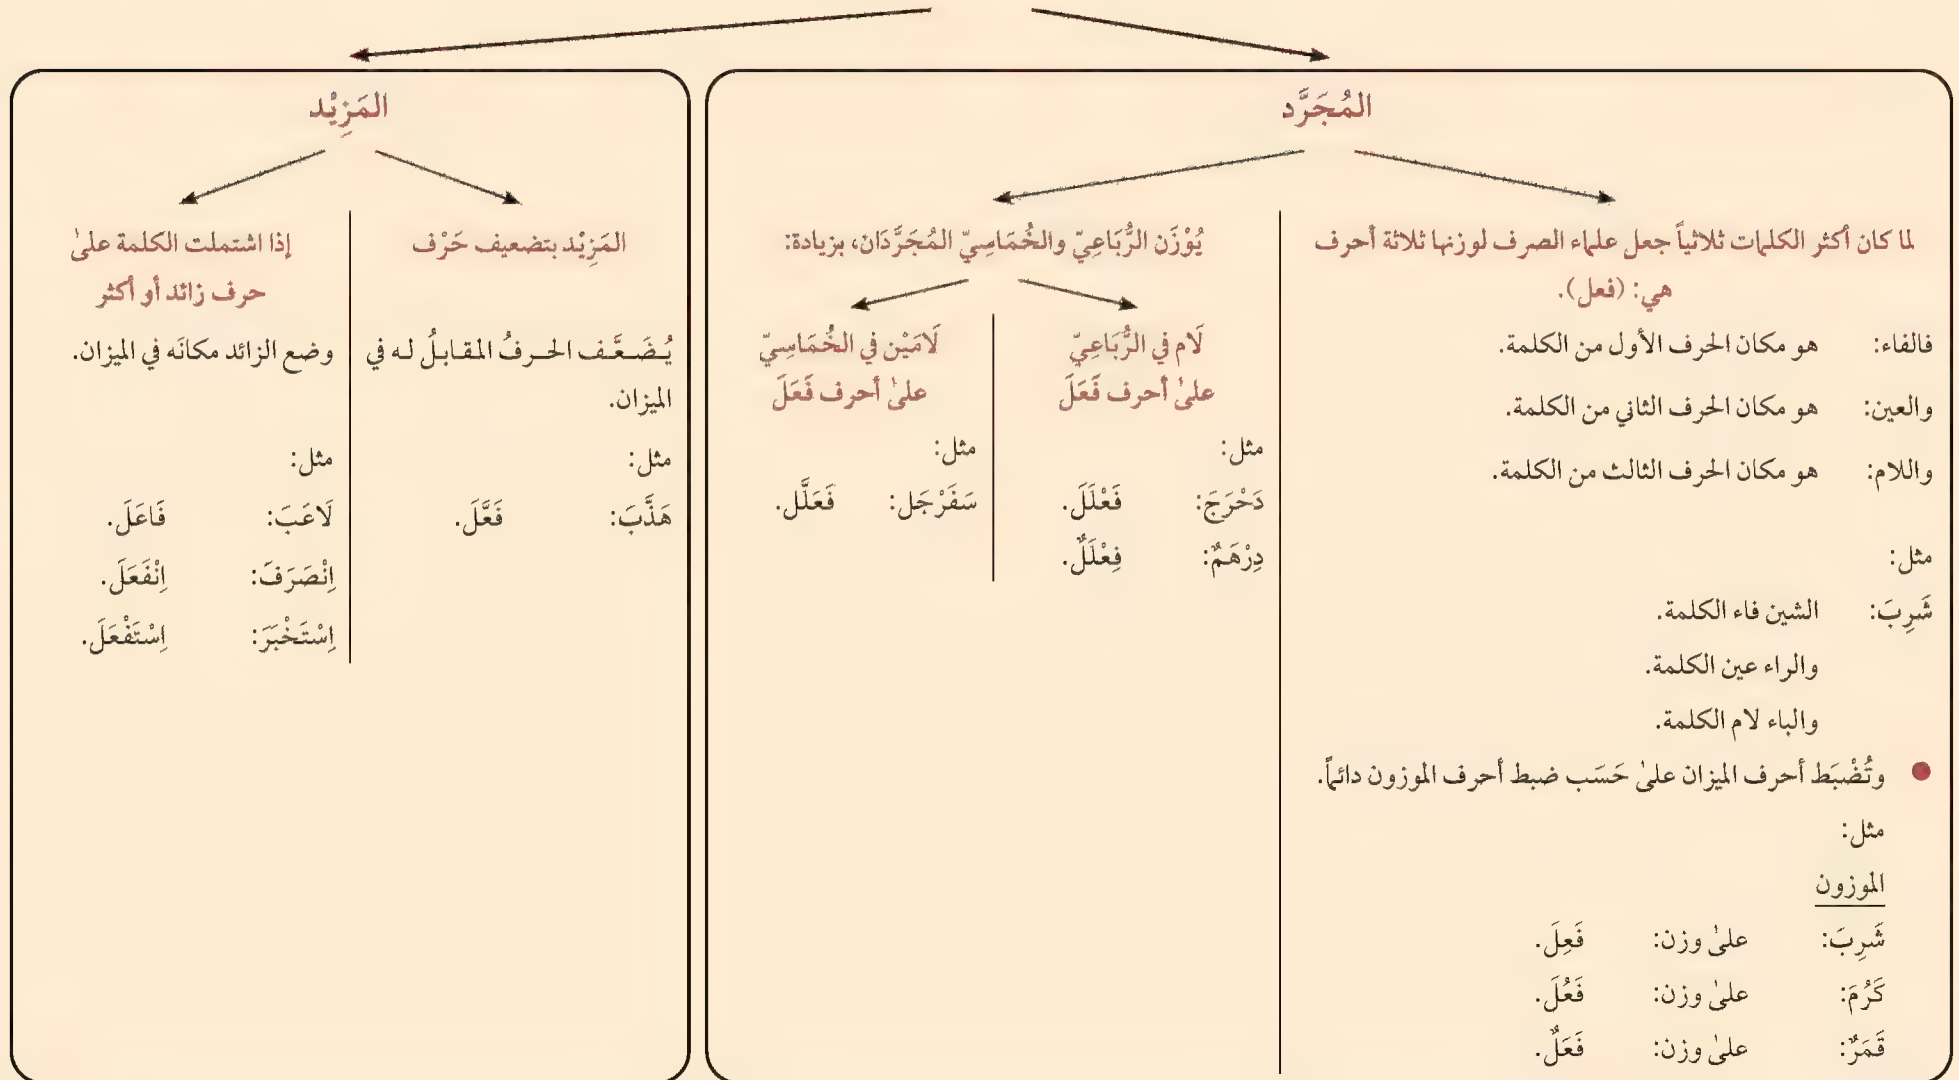 المُجَرَّد
لما كان أكثر الكلمات ثلاثياً جعل علماء الصرف لوزنها ثلاثة أحرف
هي: (فعل).
فالفاء: هو مكان الحرف الأول من الكلمة.
والعين: هو مكان الحرف الثاني من الكلمة.
واللام: هو مكان الحرف الثالث من الكلمة.
مثل:
شَرِبَ: الشين فاء الكلمة.
والراء عين الكلمة.
والباء لام الكلمة.
وتُضْبَط أحرف الميزان علىٰ حَسَب ضبط أحرف الموزون دائماً.
مثل:
الموزون
شَرِبَ: علىٰ وزن: فَعِلَ.
كَرُمَ: علىٰ وزن: فَعُلَ.
قَمَرٌ: علىٰ وزن: فَعَلٌ.
يُوْزَن الرُّبَاعِيّ والخُمَاسِيّ المُجَرَّدَان، بزيادة:
لَام في الرُّبَاعِيّ
علىٰ أحرف فَعَلَ
مثل:
دَحْرَجَ: فَعْلَلَ.
دِرْهَمٌ: فِعْلَلٌ.
لَامَيْن في الخُمَاسِيّ
علىٰ أحرف فَعَلَ
مثل:
سَفَرْجَل: فَعَلَّل.
المَزِيْد
المَزِيْد بتضعيف حَرْف
يُضَعَّف الحرفُ المقابلُ له في
الميزان.
مثل:
هَذَّبَ: فَعَّلَ.
إذا اشتملت الكلمة علىٰ
حرف زائد أو أكثر
وضع الزائد مكانَه في الميزان.
مثل:
لَاعَبَ: فَاعَلَ.
اِنْصَرَفَ: اِنْفَعَلَ.
اِسْتَخْبَرَ: اِسْتَفْعَلَ.